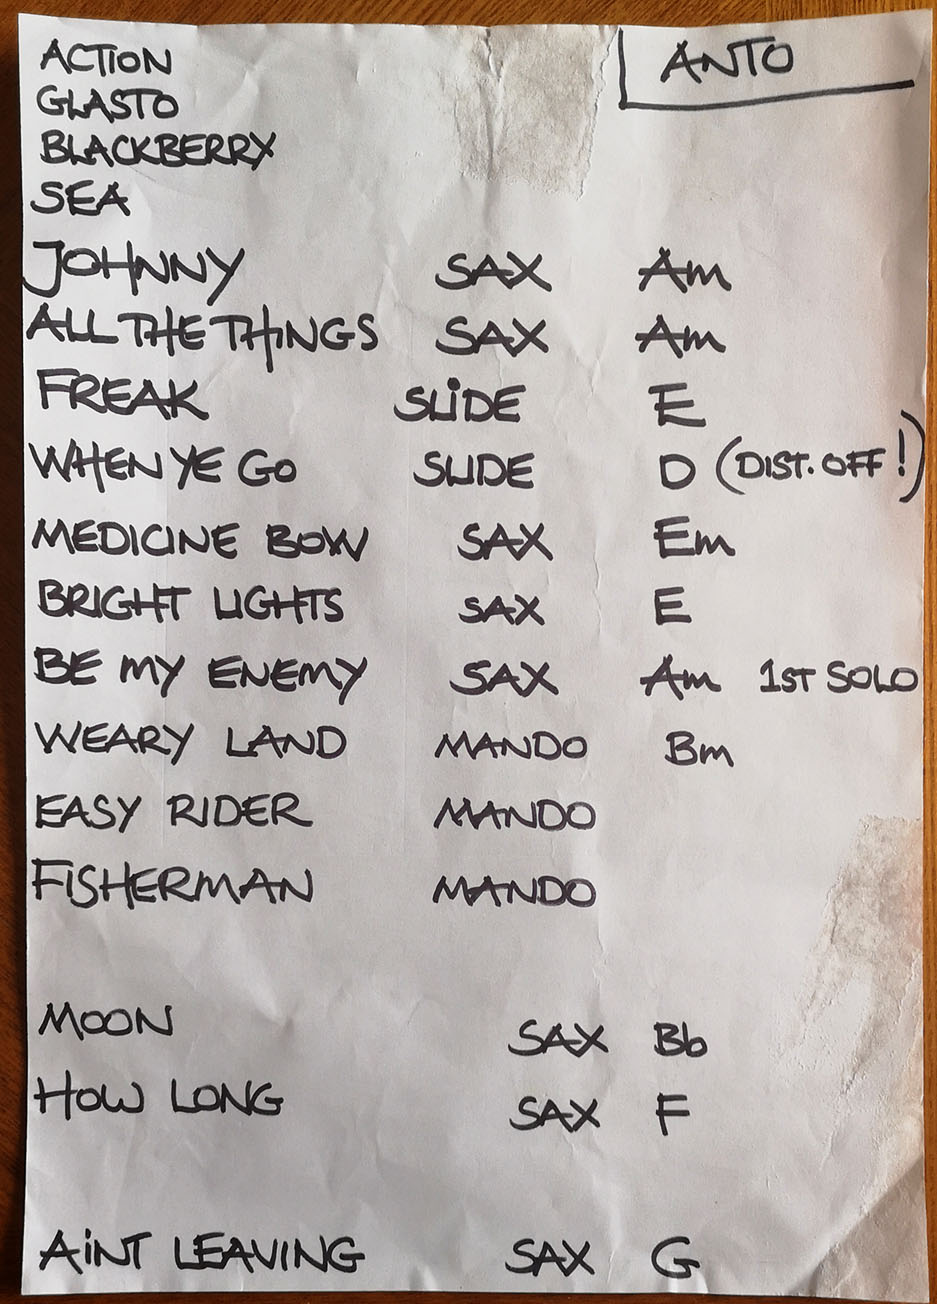 ANTO
ACTION
GLASTO
BLACKBERRY
SEA
JOHNNY SAX Am
ALL THE THINGS SAX Am
FREAK SLIDE E
WHEN YE GO SLIDE D (DIST. OFF!)
MEDICINE BOW SAX Em
BRIGHT LIGHTS SAX E
BE MY ENEMY SAX Am 1ST SOLO
WEARY LAND MANDO Bm
EASY RIDER MANDO
FISHERMAN MANDO
MOON SAX Bb
HOW LONG SAX F
AINT LEAVING SAX G